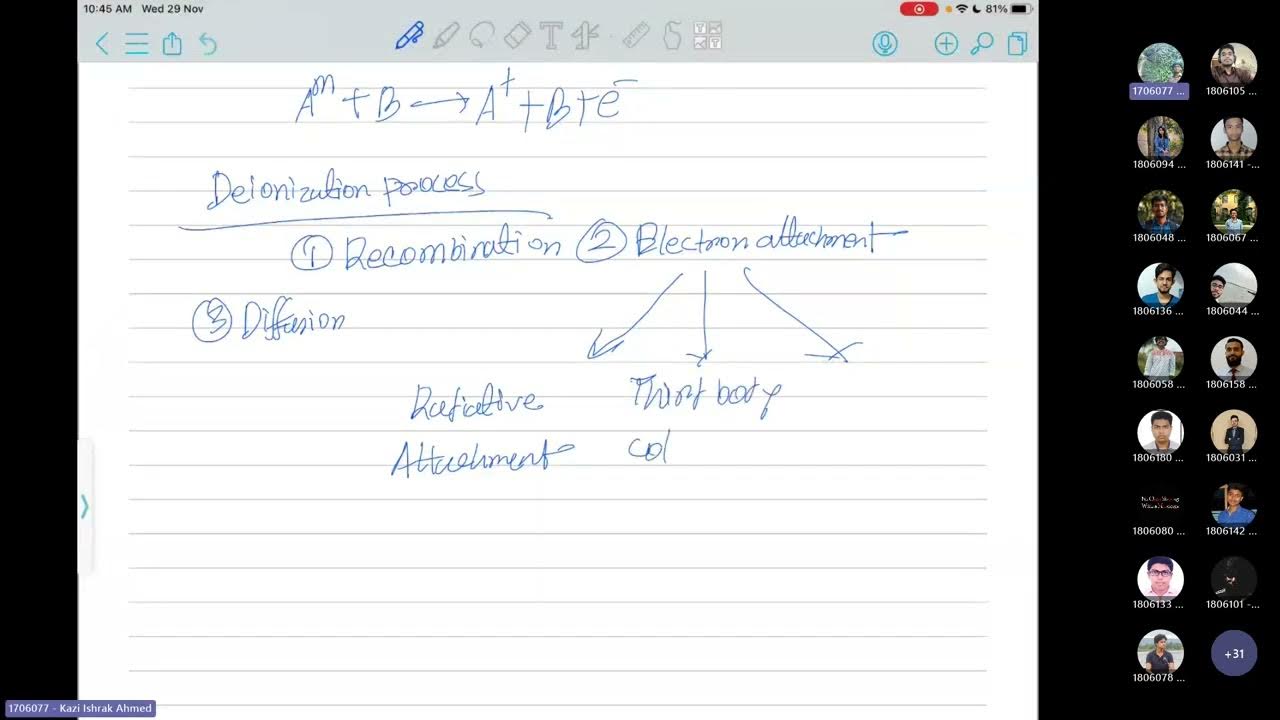 10:45 AM Wed 29 Nov
81%
Aᵐ + B ⟷ A⁺ + B + e⁻
Deionization process
① Recombination ② Electron attachment
③ Diffusion
Radiative Third body
Attachment col
1706077 ...
1806105 ...
1806094 ...
1806141 -...
1806048 ...
1806067 ...
1806136 ...
1806044 ...
1806058 ...
1806158 ...
1806180 ...
1806031 ...
1806080 ...
1806142 ...
1806133 ...
1806101 -...
1806078 ...
+31
1706077 - Kazi Ishrak Ahmed